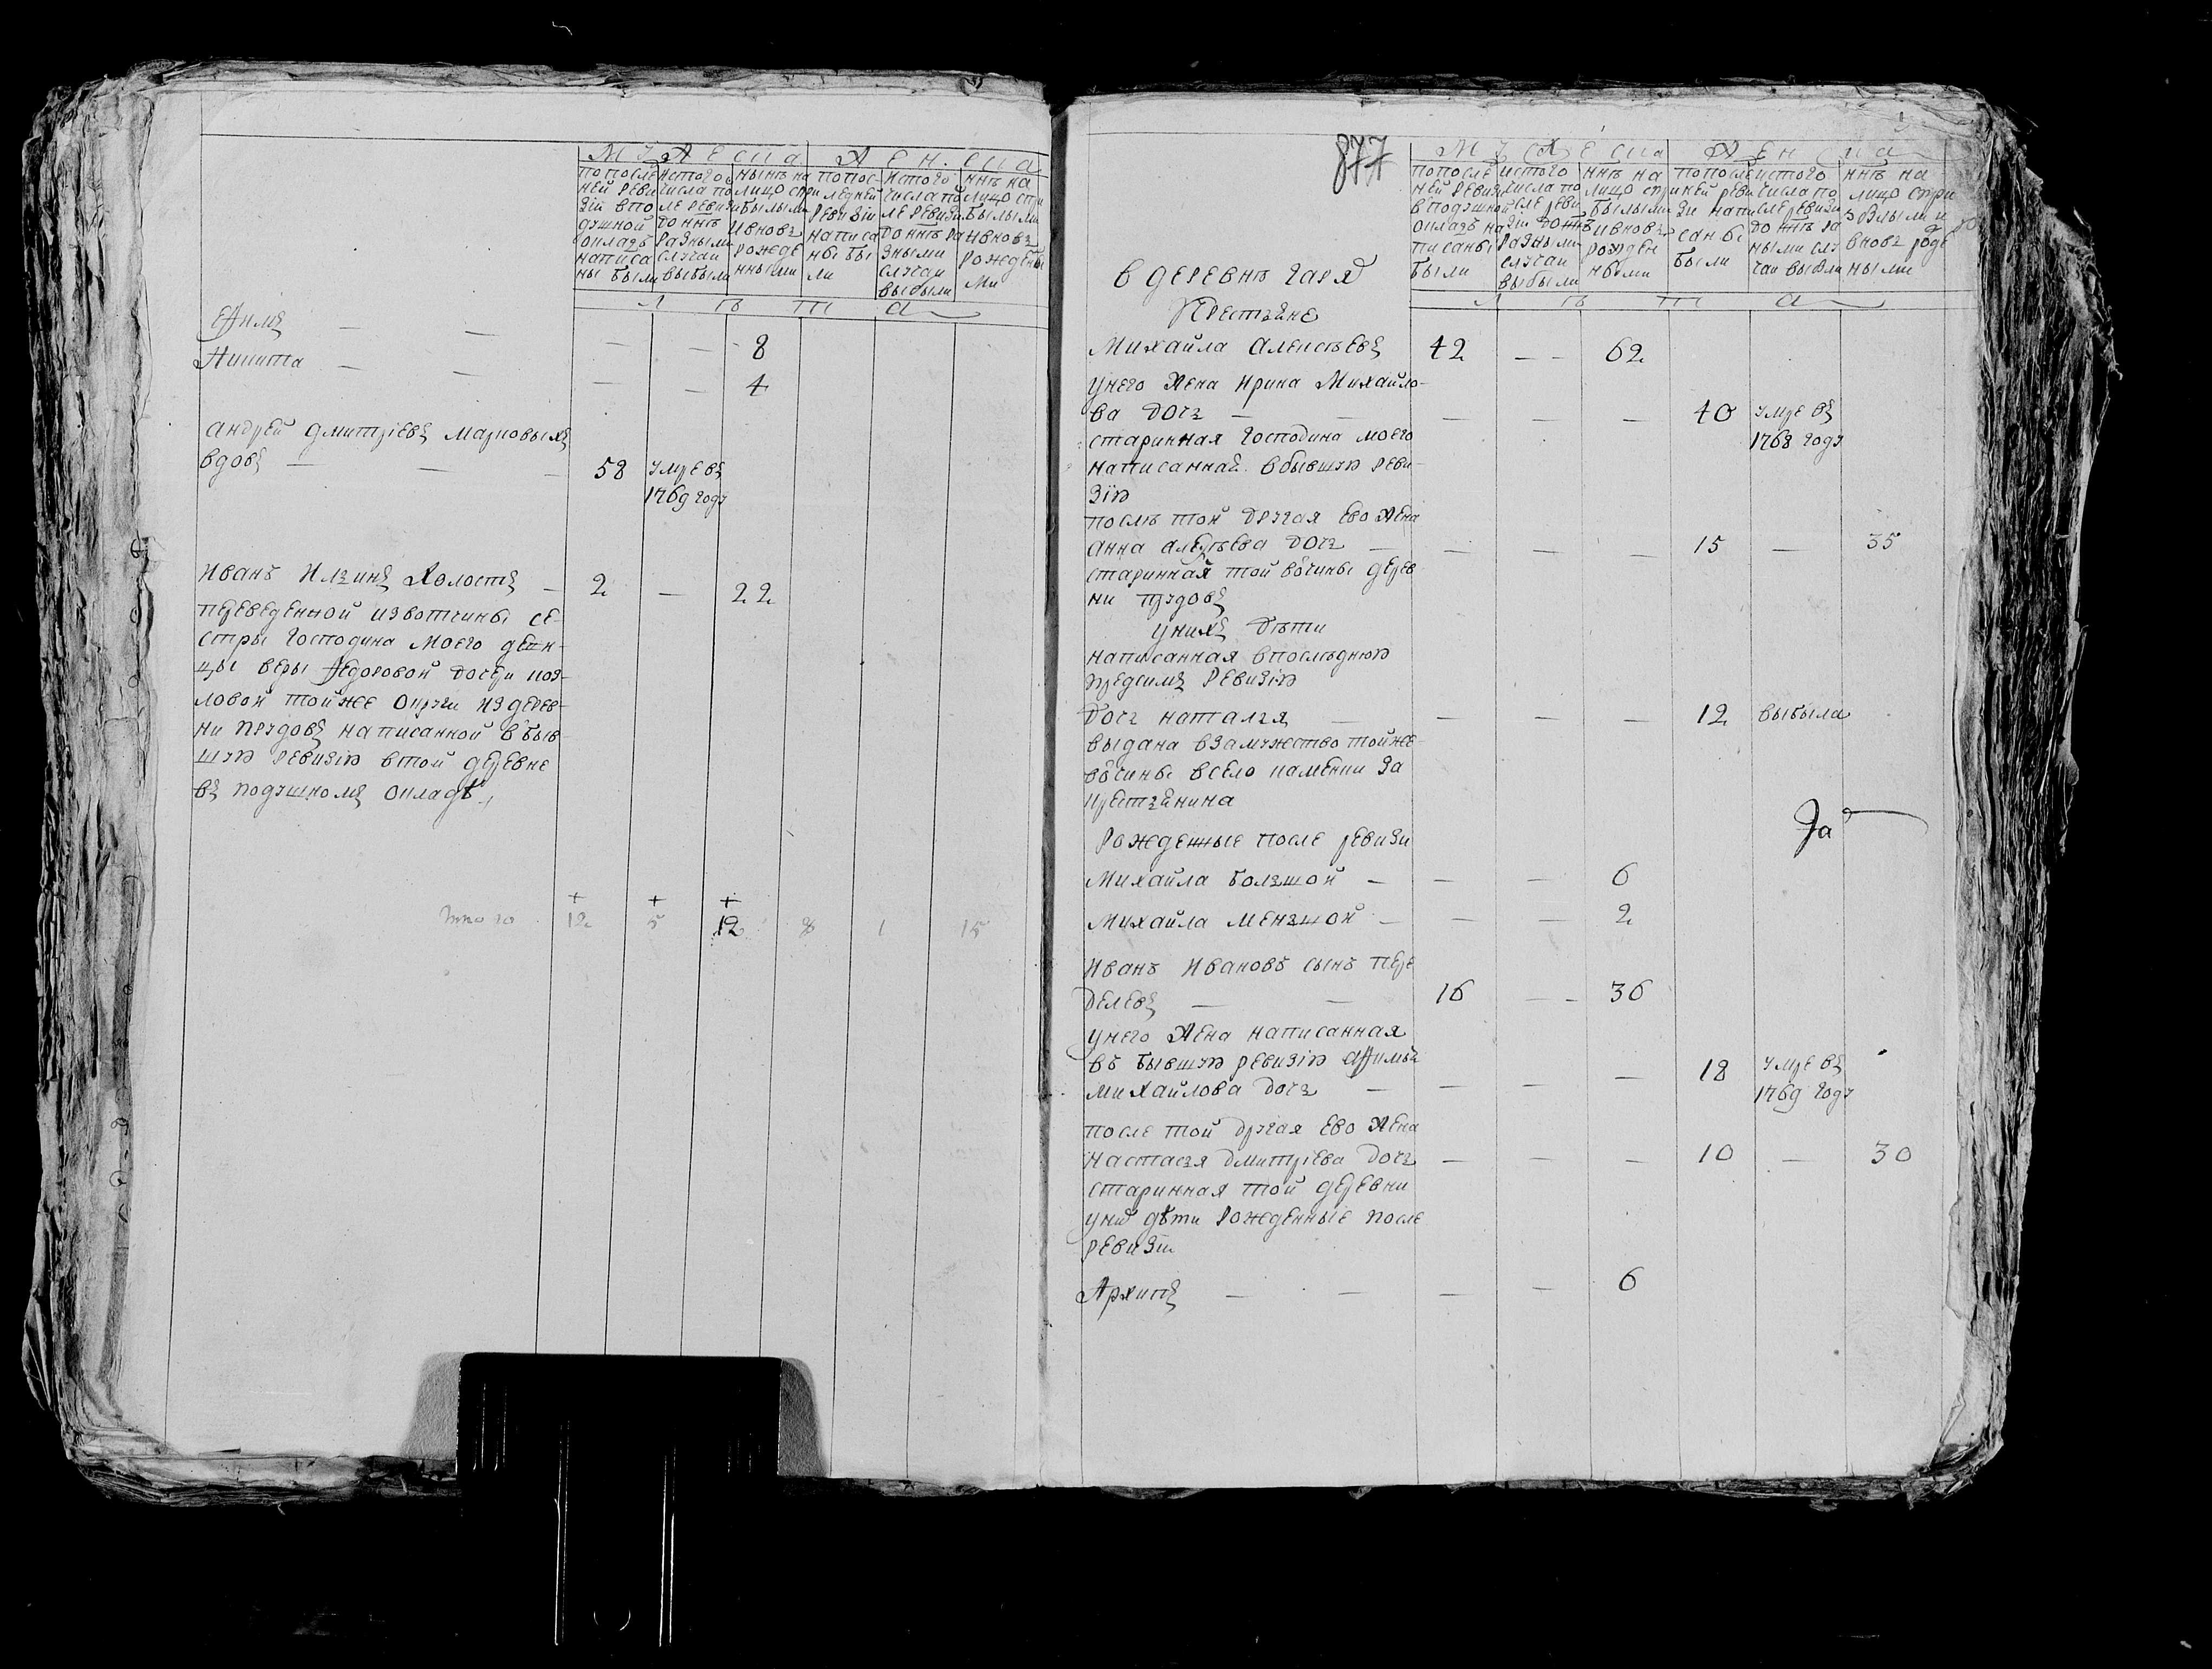 МУЖЕСКА
ЖЕНСКА
по после
ней реви
зіи в по
душной
окладъ
написа
ны были
ис того
числа по
ле ревизи
до ннѣ
разными
случаи
выбыли
нынѣ на
лицо с при
былыми
и вновь
рожде
нными
по пос-
ледней
ревизіи
написа
ны бы
ли
ис того
числа по
ле ревизи
до ннѣ ра
зными
случаи
выбыли
ннѣ на
лицо с при
былыми
и вновь
рожденны
ми
лѣта
Ефимъ — — — — 8
Никита — — — — 4
Андрей Дмитріевъ Марковыхъ
вдовъ — — — 58 умре въ
1769 году
Иванъ Ильинъ холостъ — 2 — 22
переведенной из вотчины се-
стры господина моего деви-
цы веры Федоровой дочери коз-
ловой той же округи из дерев-
ни Прудовъ написанной в быв-
шую ревизію в той деревне
въ подушномъ окладѣ
Итого 12 5 12 8 1 15
877
МУЖЕСКА
ЖЕНСКА
по после
ней ревизи
в подушной
окладъ на
писаны
были
ис того
числа по
сле реви
зіи до ннѣ
разными
случаи
выбыли
ннѣ на
лицо с при
былыми
и вновь
рожден
ными
по после
ней реви
зи напи
саны
были
ис того
числа по
сле ревизи
до ннѣ ра
ными слу
чаи выбли
ннѣ на
лицо с при
былыми и
вновь рожде
ными
лѣта
в деревнѣ Гаря
Крестьяне
Михайла Алексѣевъ 42 — — 62
у него жена Ирина Михайло-
ва дочь — — — — — 40 умре въ
1768 году
старинная господина моего
написанная в бывшую реви-
зію
послѣ той другая ево жена
Анна Алексѣева дочь — — — — 15 — 35
старинная той вочины дерев
ни прудовъ
у нихъ дѣти
написанная в последнюю
предсимъ ревизію
дочь наталья — — — — 12 выбыла
выдана в замужество той же-
вочины в село каменки за
крестьянина
За
Рожденные после ревизи
Михайла большой — — — 6
Михайла меньшой — — — 2
Иванъ Ивановъ сынъ пере
делевъ — — 16 — — 36
у него жена написанная
въ бывшую ревизію Афимья
михайлова дочь — — — — 18 умре въ
1769 году
после той другая ево жена
настасья дмитріева дочь — — — 10 — 30
старинная той деревни
у ни дѣти рожденные после
ревизіи
Архипъ — — — — 6